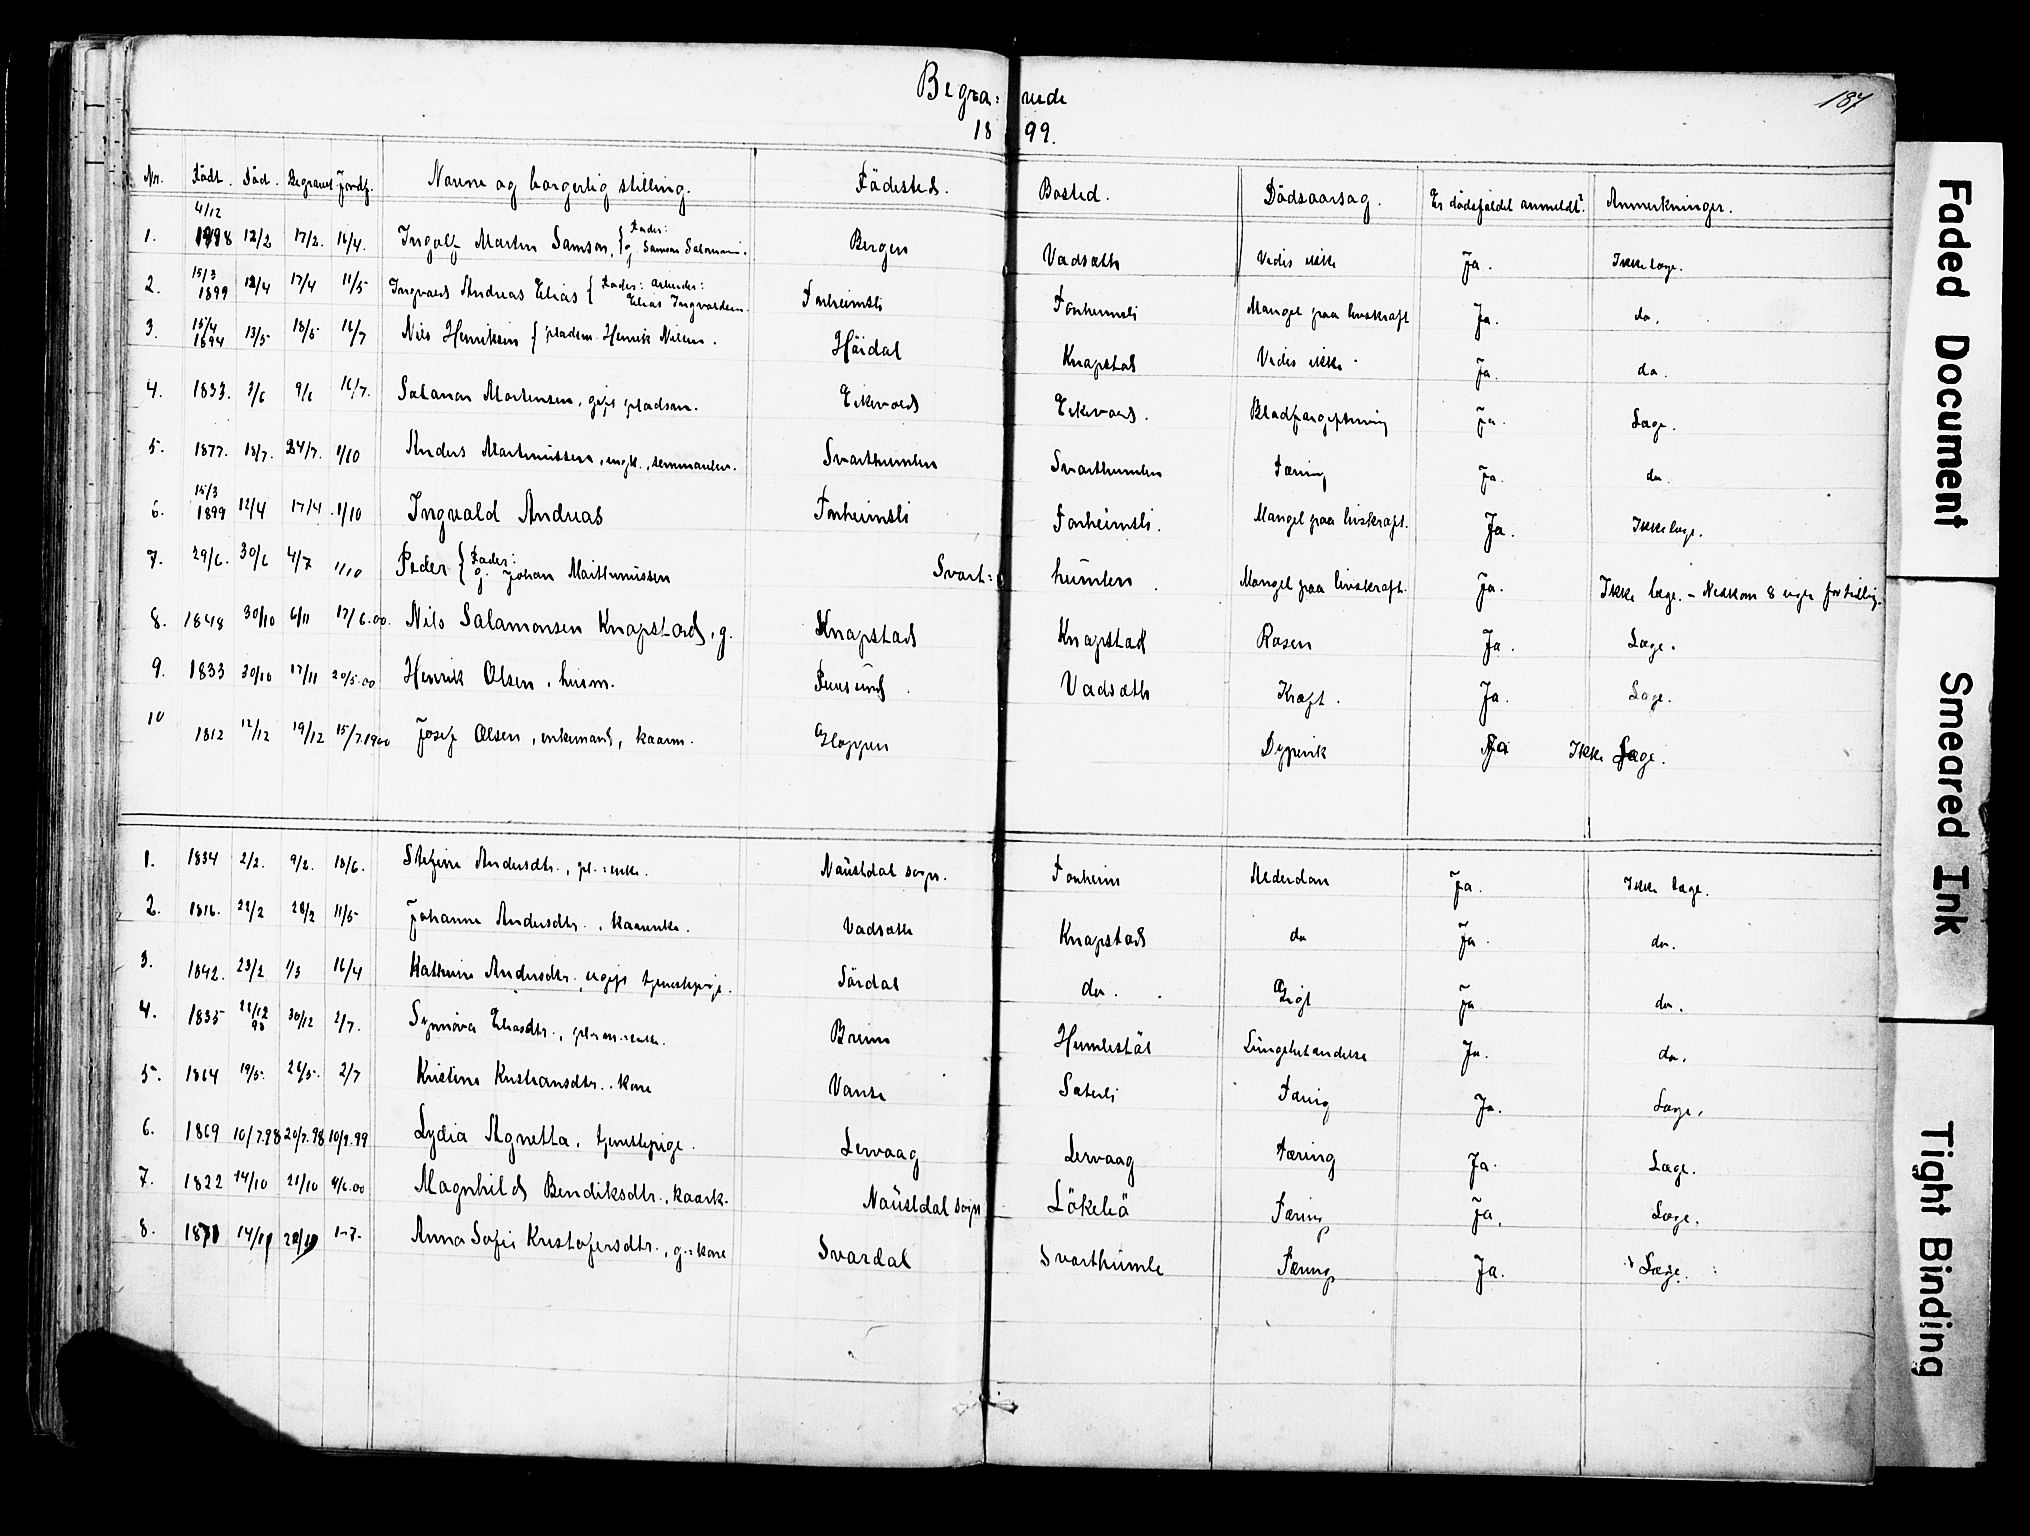 Begra: vede
1899.
187
Nr. Födt. Död. Begravet Jordf. Navne og borgerlig stilling. Födested. Bosted. Dödsaarsag. Er dödsfaldet anmeldt? Anmerkninger.
1. 4/12 1898 12/2 17/2. 16/4. Ingolf Martin Samson, { Fader: g. Samson Salomons. Bergen Vadsæth Vides ikke Ja. Ikke læge.
2. 15/3 1899 12/4 17/4 11/5 Ingvald Andreas Elias { Fader: arbeider: Elias Ingvaldsen Fonheimsli Fonheimsli Mangel paa livskraft Ja. do.
3. 15/4 1894 13/5 18/5 16/7 Nils Henriksen { pladsm. Henrik Nilsen. Höidal Knapstad Vides ikke Ja. do.
4. 1833. 3/6 9/6 16/7. Salamon Mortensen, gift pladsm. Eikevold Eikevold. Blodforgiftning Ja. Læge.
5. 1877. 18/7. 24/7. 1/10 Anders Martinussen, ungk., seminarelev. Svarthumlen Svarthumlen Tæring Ja. do.
6. 15/3 1899 12/4 17/4. 1/10 Ingvald Andreas Fonheimsli Fonheimsli. Mangel paa livskraft. Ja. Ikke læge.
7. 29/6. 30/6 4/7 1/10 Peder { Fader: g. Johan Marthinussen Svart: humlen. Mangel paa livskraft. Ja. Ikke læge. - Nedkom 8 uger for tidlig.
8. 1848 30/10 6/11 17/6.00. Nils Salamonsen Knapstad, g. Knapstad Knapstad Rosen Ja. Læge.
9. 1833 30/10 17/11 20/5.00 Henrik Olsen, husm. Vadsæth Kræft. Ja. Læge.
10 1812 12/12 19/12 15/7.1900 Josef Olsen, enkemand, kaarm. Gloppen Dypevik Ja Ikke Læge.
1. 1834 2/2. 9/2. 18/6. Stefine Andersdtr., pl.:enke. Naustdal sogn. Fonheim Alderdom Ja. Ikke læge.
2. 1816. 22/2 28/2 11/5 Johanne Andersdtr., kaarenke. Vadsæth Knapstad do Ja. do.
3. 1842. 23/2 1/3 16/4 Kathrine Andersdtr., ugift tjenestepige. Sördal do. Gigt Ja do.
4. 1835 22/12 98 30/12 2/7. Synnöva Eliasdtr., pladsm.:enke. Breim Humlestöl Lungebetændelse Ja. do.
5. 1864 19/5. 26/5. 2/7 Kristine Kristiansdtr.. kone Vanse Sæterli Tæring Ja. Læge.
6. 1869 10/7.98 20/7.98 10/9.99 Lydia Agnetta, tjenestepige. Lervaag Lervaag Tæring Ja. Læge.
7. 1822 14/10 21/10 9/6.00 Magnhild Bendiksdtr., kaark. Naustdal sogn Lökeleö Tæring Ja. Læge.
8. 1871 14/11 22/11 1-7. Anna Sofie Kristofersdtr., g.:kone Svardal Svarthumle Tæring Ja. Læge.
Faded Document
Smeared Ink
Tight Binding